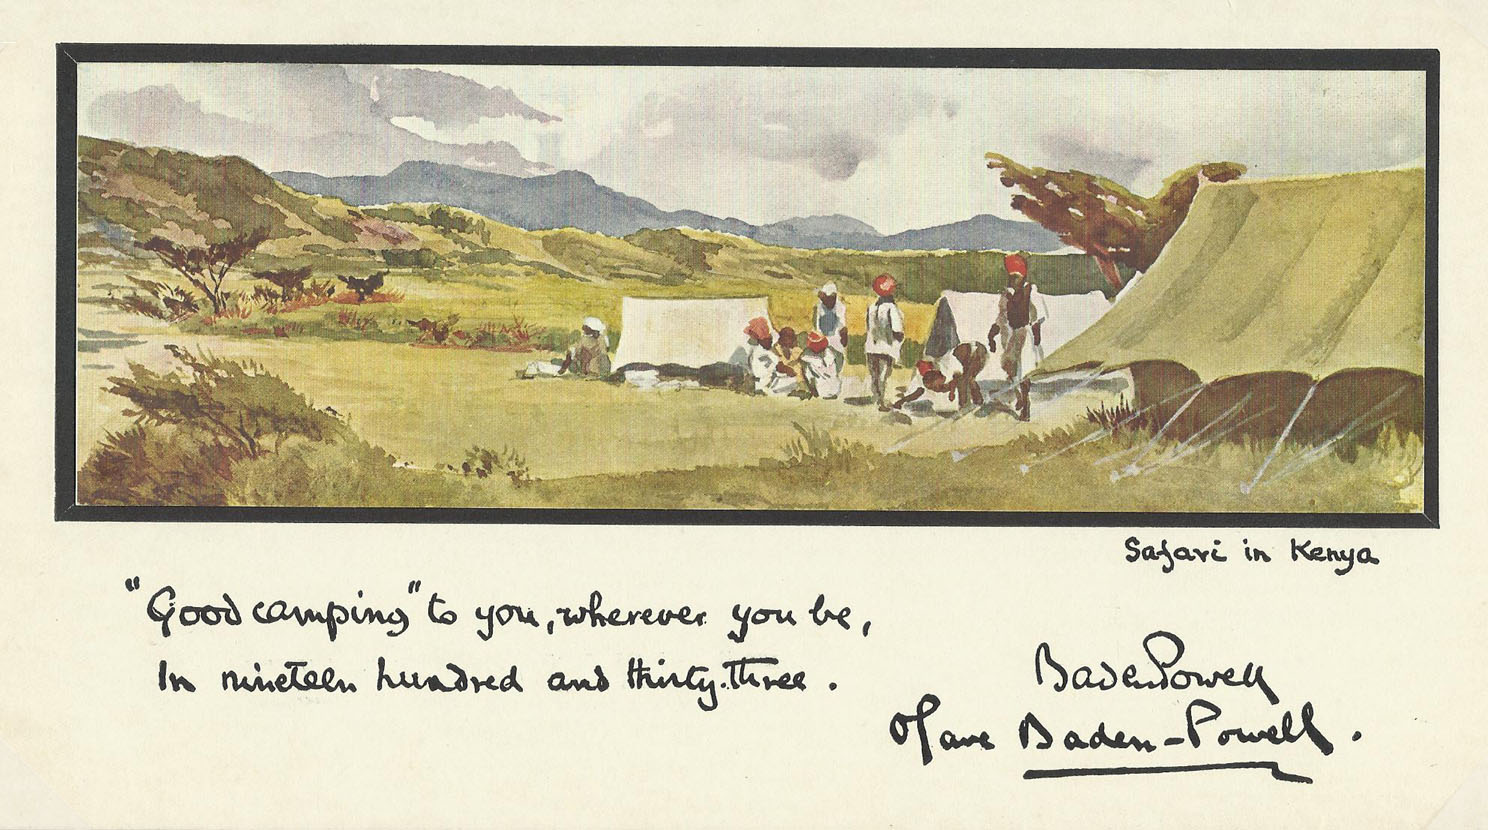 Safari in Kenya
"Good camping" to you, wherever you be,
In nineteen hundred and thirty-three.
Baden Powell
Olave Baden-Powell.